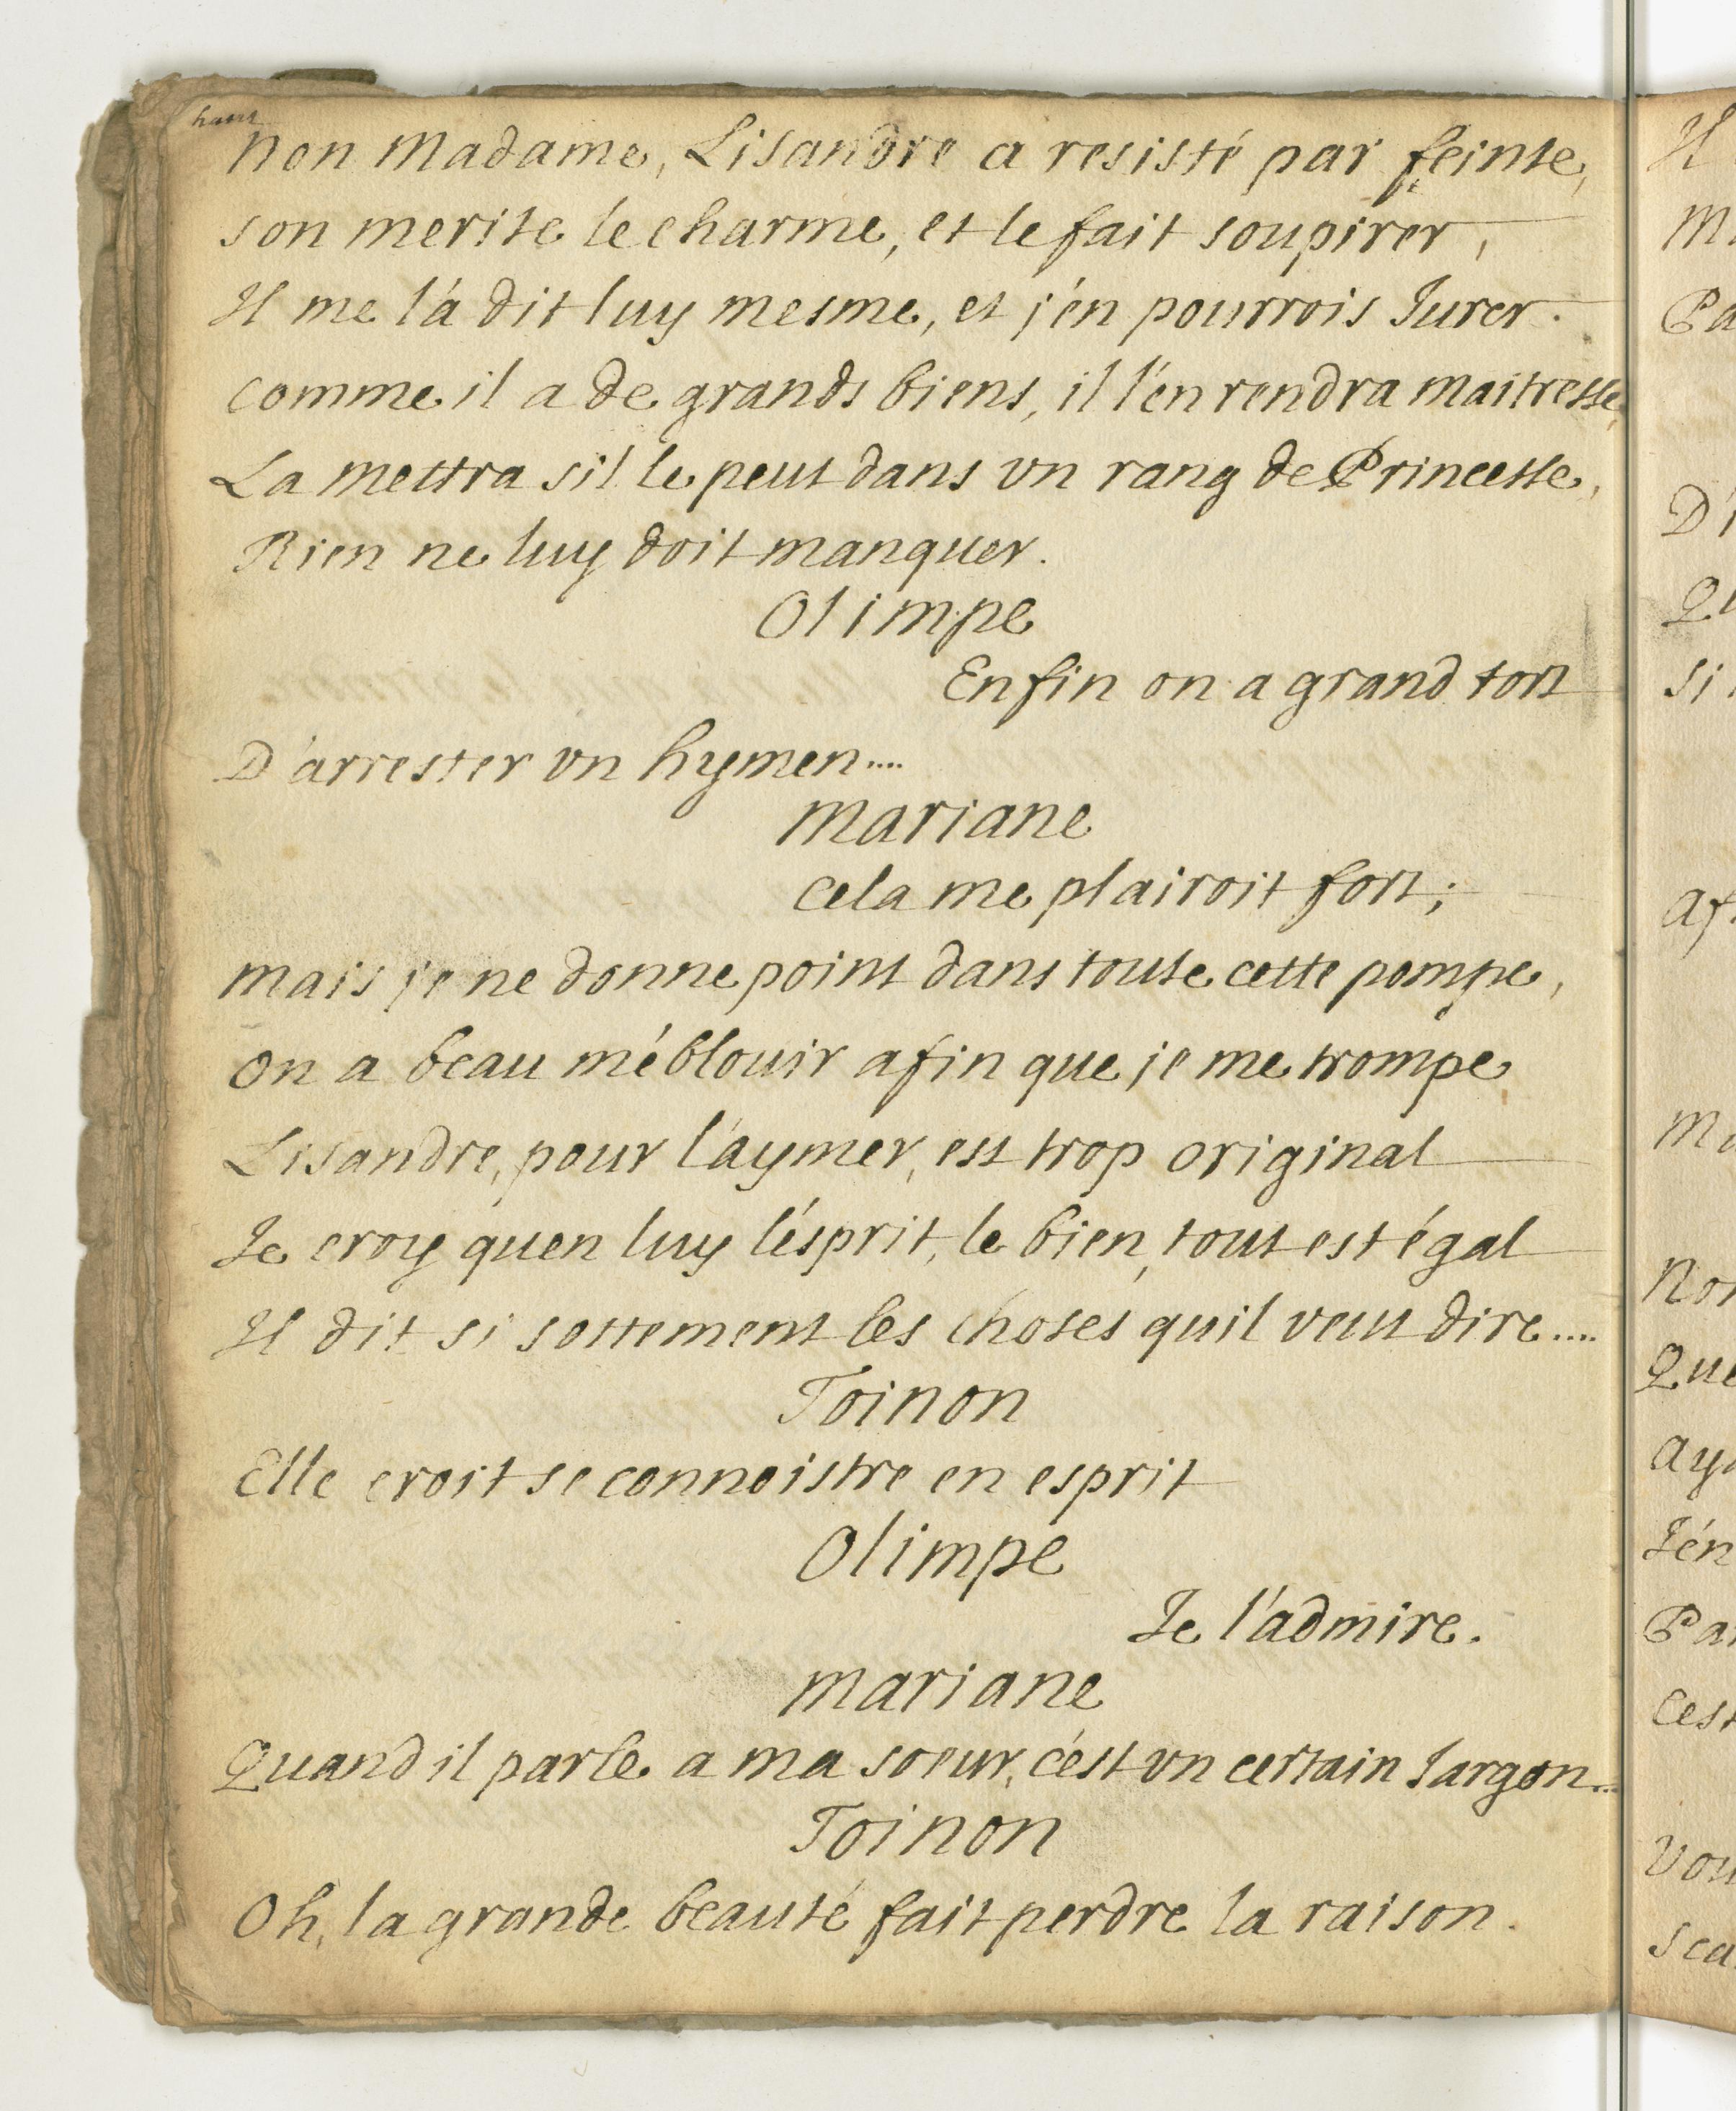 haut
Non Madame, Lisandre a resisté par feinte,
son merite le charme, et le fait soupirer,
Il me l'a dit luy mesme, et j'én pourrois Jurer.
comme il a de grands biens, il l'én rendra maitresse,
La mettra sil le peut dans vn rang de Princesse,
Rien ne luy doit manquer.
Olimpe
Enfin on a grand tort
D'arrester vn hymen....
Mariane
cela me plairoit fort;
mais je ne donne point dans toute cette pompe,
on a beau m'éblouir afin que je me trompe
Lisandre, pour l'aymer, est trop original
Je croy quen luy l'ésprit, le bien, tout est égal
Il dit si sottement les choses quil veut dire....
Toinon
Elle croit se connoistre en esprit
Olimpe
Je l'admire.
Mariane
Quand il parle a ma soeur, c'ést vn certain Jargon...
Toinon
Oh, la grande beauté fait perdre la raison.
Il
Pa
D'i
Qu
si
af
Non
Que
Ay
J'én
Par
Cest
Vou
sca